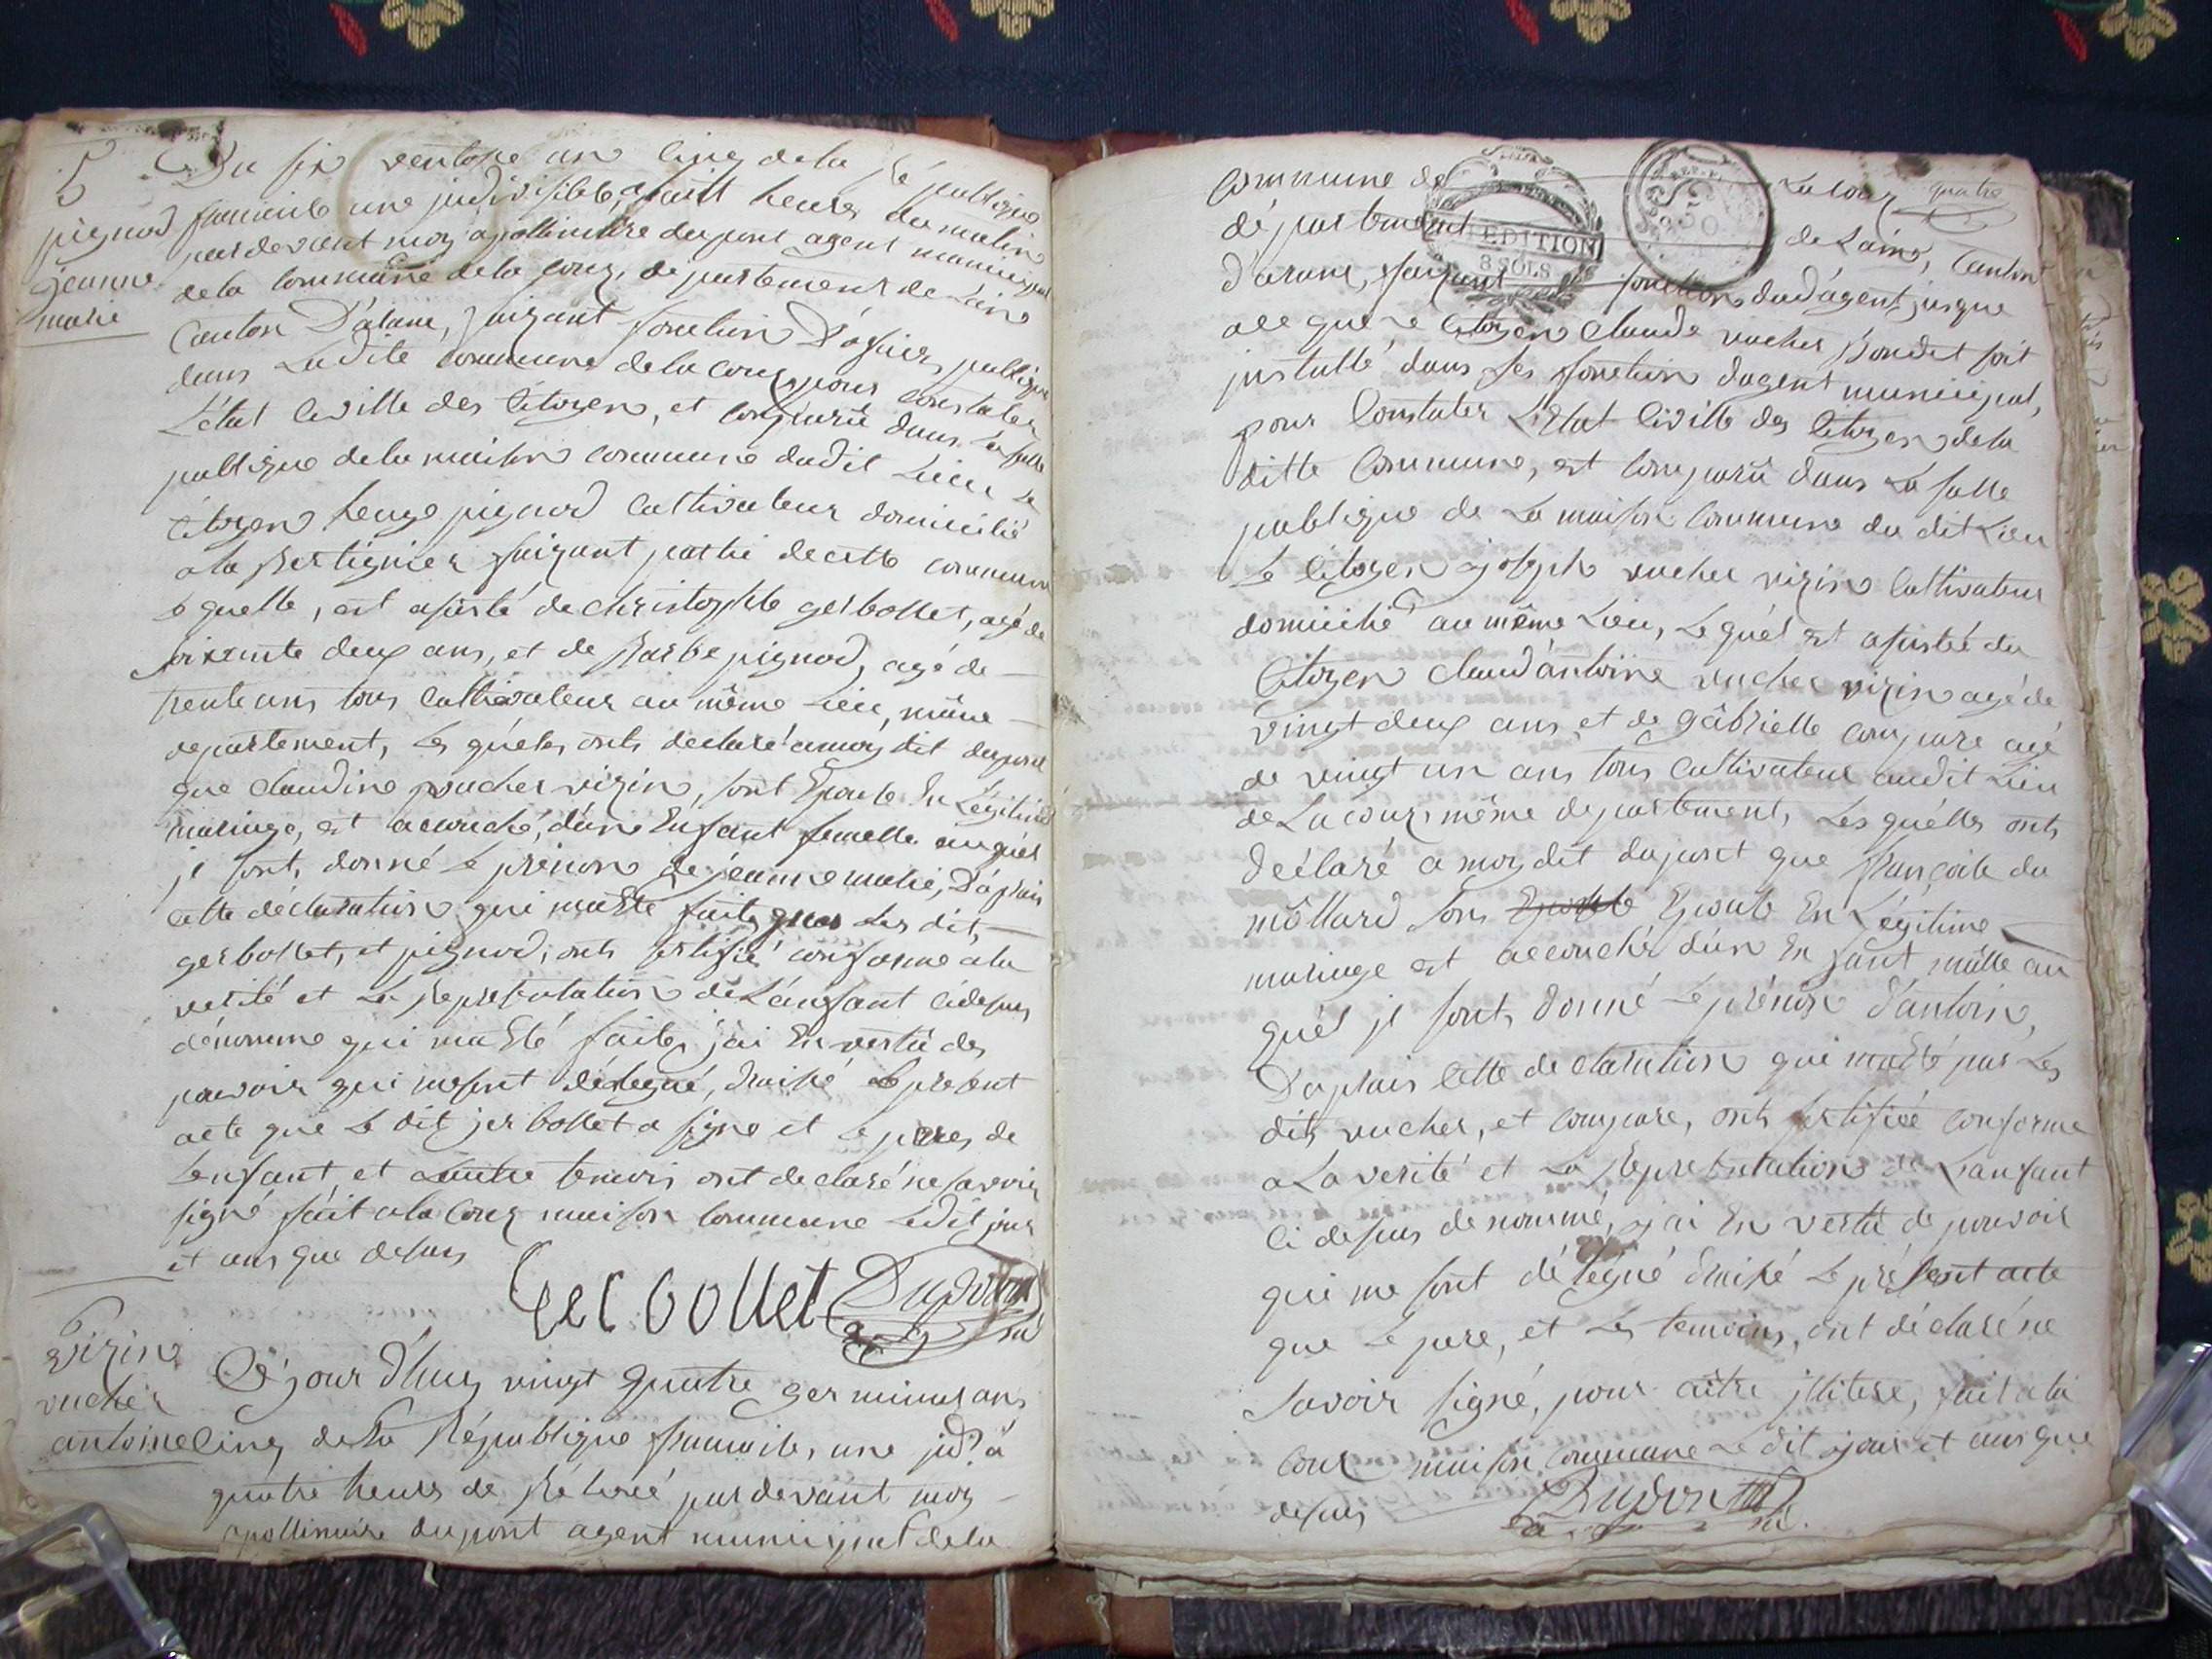 5
pignod
jeanne
marie
Du six ventose an cinq de la République
francoise une indivisible, a huit heures du matin
pardevant moy apollinaire dupont agent municipal
de la commune de la couz, département de Lain
Canton D'arane, faizant fonction D'oficier publique
dans Ladite commune de la couz, pour constater
L'état Civille des Citoyen, et comparû dans La salle
publique de la maison commune dudit Lieu Le
Citoyen pignod cultivateur domicilié
a la faizant partie de cette commune
Lequelle, est asisté de christophle gerbollet, agé de
soixente deux ans, et de pignod, agé de
trente ans tous cultivateur au même Lieu, même
departement, Les quéles onts déclaré a moy dit dupont
que claudine vucher vizin, sont Epouse En Légitime
mariage, est acouché, d'une Enfant femelle auquél
jl sont, donné Le prénom de jéanne marie, D'aprais
cette déclaration qui maEté faite que Les dit,
gerbollet, et pignod, onts sertifié conforme a la
verité et La Représentation de L'enfant cidesus
dénomme qui maEté faite, j'ai En vertû des
pouvoir qui mesont délégué, Le présent
acte que Le dit jerbollet a signe et Le peres de
Lenfant, et autre temoin ont declaré ne savoir
signé fait a la Couz maison Commune Ledit jour
et ans que desus
Gerbollet Dupont
6
vizin
vucher
antoine
Cé jour d'huy vingt quatre germinal ans
Cinq de La République francoise, une jd? à
quatre heures de Rélevé pardevant moy
apollinaire dupont agent municipal de la
quatre
Commune de La Couz
EDITION
8 SOLS
département de Laine, Canton
d'arane, faizant fonction dud'agent, jusque
a ce que Le Citoyen Claude vucher soit
jnstallé dans ses fonction dagent municipal,
pour Constater L'Etat Civille des Citoyen de la
ditte Commune, est comparû dans La salle
publique de La maison Commune du dit Lieu
Le Citoyen joseph vucher vizin Cultivateur
domicilié au même Lieu, Lequél est asistéé du
Citoyen Claud'antoine vucher vizin agé de
vingt deux ans, et de gâbrielle compare agé
de vingt un ans tous cultivateur audit Lieu
de La couz même département, Les quélles onts
Déclaré a moy dit dupont que françoise du
môllard sons Epouse Epouse En Légitime
mariage est accouché d'un Enfant mâlle au
quél jl sont, donné Le prénom d'antoine,
D'aprais Cette declaration qui maEté par Les
dit, vucher, et compare, onts sertifiéé conforme
a La verité et La Représentation de Lanfant
ci desus denommé, j'ai En vertû de pouvoir
qui me sont délégué Le présent acte
que Le pere, et Les temoins, ont déclaré ne
savoir signé, pour aître jlliteré, fait a la
Couz maison commune Le dit jour et ans que
desus
Dupont